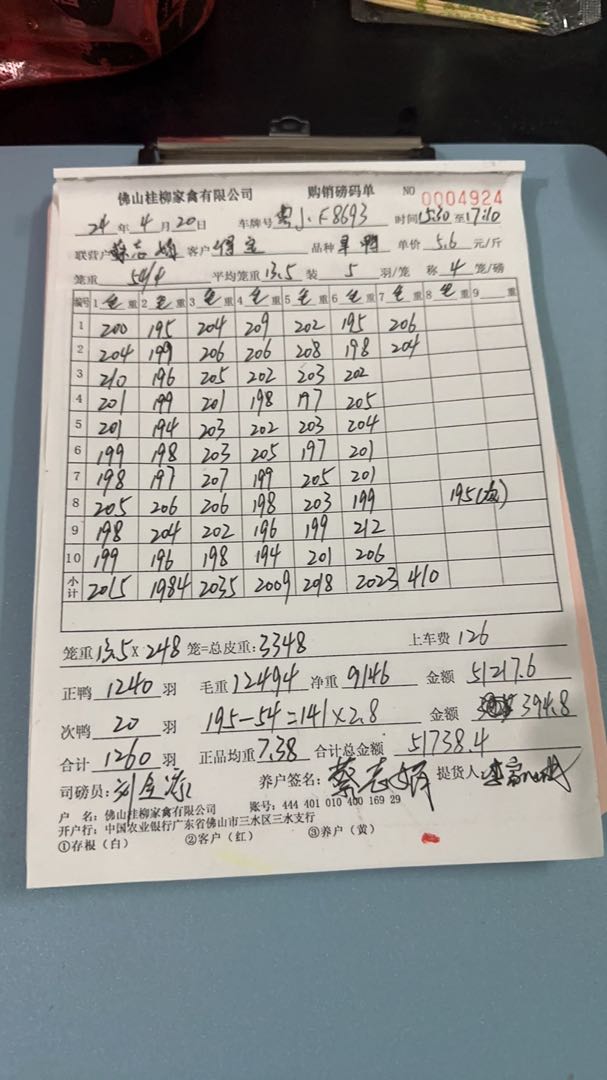 佛山桂柳家禽有限公司 购销磅码单 NO 0004924
24 年 4 月 20 日 车牌号 粤J·F8693 时间 15:30 至 17:10
联营户 客户 品种 旱鸭 单价 5.6 元/斤
笼重 54/4 平均笼重 13.5 装 5 羽/笼 称 4 笼/磅
编号 1 毛 重 2 毛 重 3 毛 重 4 毛 重 5 毛 重 6 毛 重 7 毛 重 8 毛 重 9 重
1 200 195 204 209 202 195 206
2 204 199 206 206 208 198 204
3 210 196 205 202 203 202
4 201 199 201 198 197 205
5 201 194 203 202 203 204
6 199 198 203 205 197 201
7 198 197 207 199 205 201
8 205 206 206 198 203 199 195(次)
9 198 204 202 196 199 212
10 199 196 198 194 201 206
小计 2015 1984 2035 2009 2018 2023 410
笼重 13.5 × 248 笼=总皮重: 3348 上车费 126
正鸭 1240 羽 毛重 12494 净重 9146 金额 51217.6
次鸭 20 羽 195-54=141×2.8 金额 394.8
合计 1260 羽 正品均重 7.38 合计总金额 51738.4
司磅员: 养户签名: 提货人:
户 名: 佛山桂柳家禽有限公司 账号: 444 401 010 400 169 29
开户行: 中国农业银行广东省佛山市三水区三水支行
①存根(白) ②客户(红) ③养户(黄)